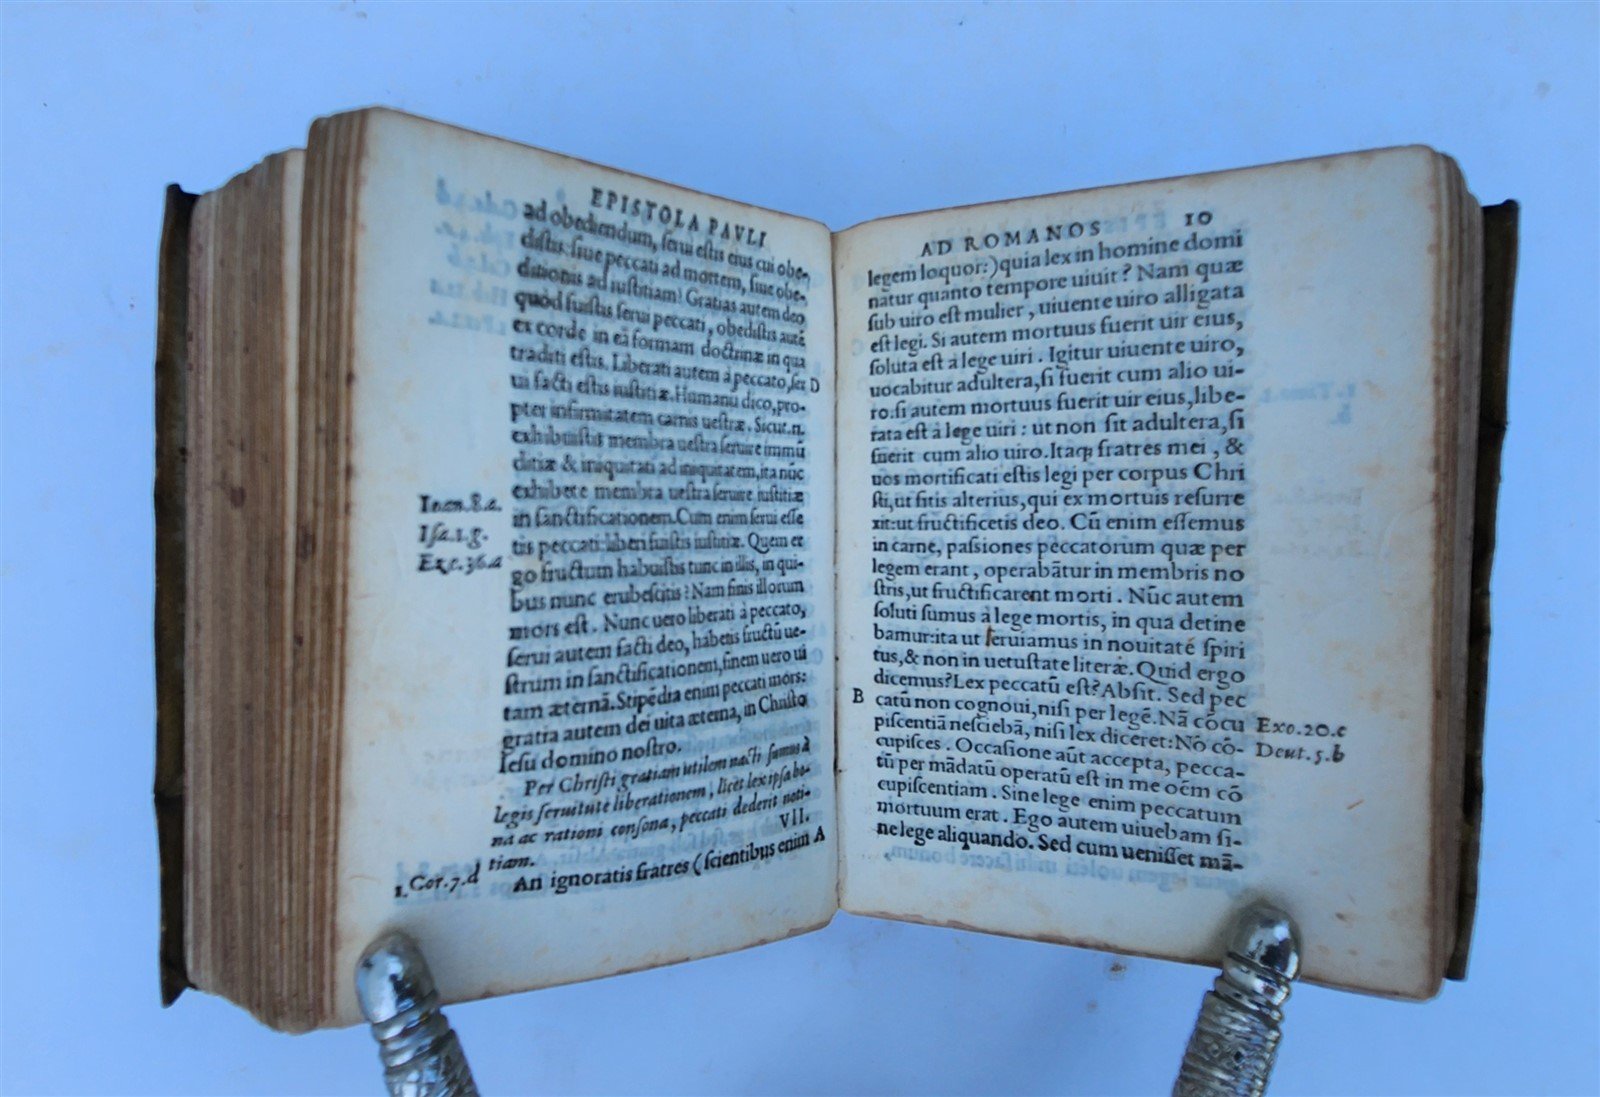 EPISTOLA PAVLI
ad obediendum, serui estis eius cui obe-
distis: siue peccati ad mortem, siue obe-
ditionis ad iustitiam? Gratias autem deo
quòd fuistis serui peccati, obedistis autē
ex corde in eā formam doctrinæ in qua
traditi estis. Liberati autem à peccato, ser D
ui facti estis iustitiæ. Humanū dico, pro-
pter infirmitatem carnis uestræ. Sicut.n.
exhibuistis membra uestra seruire immū
ditiæ & iniquitati ad iniquitatem, ita nūc
exhibete membra uestra seruire iustitiæ
Ioan.8.e.
in sanctificationem. Cum enim serui esse
Isa.1.g.
tis peccati: liberi fuistis iustitiæ. Quem er
go fructum habuistis tunc in illis, in qui-
bus nunc erubescitis? Nam finis illorum
mors est. Nunc uero liberati à peccato,
serui autem facti deo, habetis fructū ue-
strum in sanctificationem, finem uero ui
tam æternā. Stipēdia enim peccati mors:
gratia autem dei uita æterna, in Christo
Iesu domino nostro.
Per Christi gratiam utilem nacti sumus à
legis seruitute liberationem, licet lex ipsa bo-
na ac rationi consona, peccati dederit noti-
tiam.
VII.
1.Cor.7.d
An ignoratis fratres (scientibus enim A
AD ROMANOS 10
legem loquor:) quia lex in homine domi
natur quanto tempore uiuit? Nam quæ
sub uiro est mulier, uiuente uiro alligata
est legi. Si autem mortuus fuerit uir eius,
soluta est a lege uiri. Igitur uiuente uiro,
uocabitur adultera, si fuerit cum alio ui-
ro. si autem mortuus fuerit uir eius, libe-
rata est à lege uiri: ut non sit adultera, si
fuerit cum alio uiro. Itaq; fratres mei, &
uos mortificati estis legi per corpus Chri
sti, ut sitis alterius, qui ex mortuis resurre
xit: ut fructificetis deo. Cū enim essemus
in carne, passiones peccatorum quæ per
legem erant, operabātur in membris no
stris, ut fructificarent morti. Nūc autem
soluti sumus à lege mortis, in qua detine
bamur: ita ut seruiamus in nouitate spiri
tus, & non in uetustate literæ. Quid ergo
dicemus? Lex peccatū est? Absit. Sed pec
B catū non cognoui, nisi per legē. Nā cōcu
Exo.20.c
piscentiā nesciebā, nisi lex diceret: Nō cō-
Deut.5.b
cupisces. Occasione aūt accepta, pecca-
tū per mādatū operatū est in me oēm cō
cupiscentiam. Sine lege enim peccatum
mortuum erat. Ego autem uiuebam si-
ne lege aliquando. Sed cum uenisset mā-